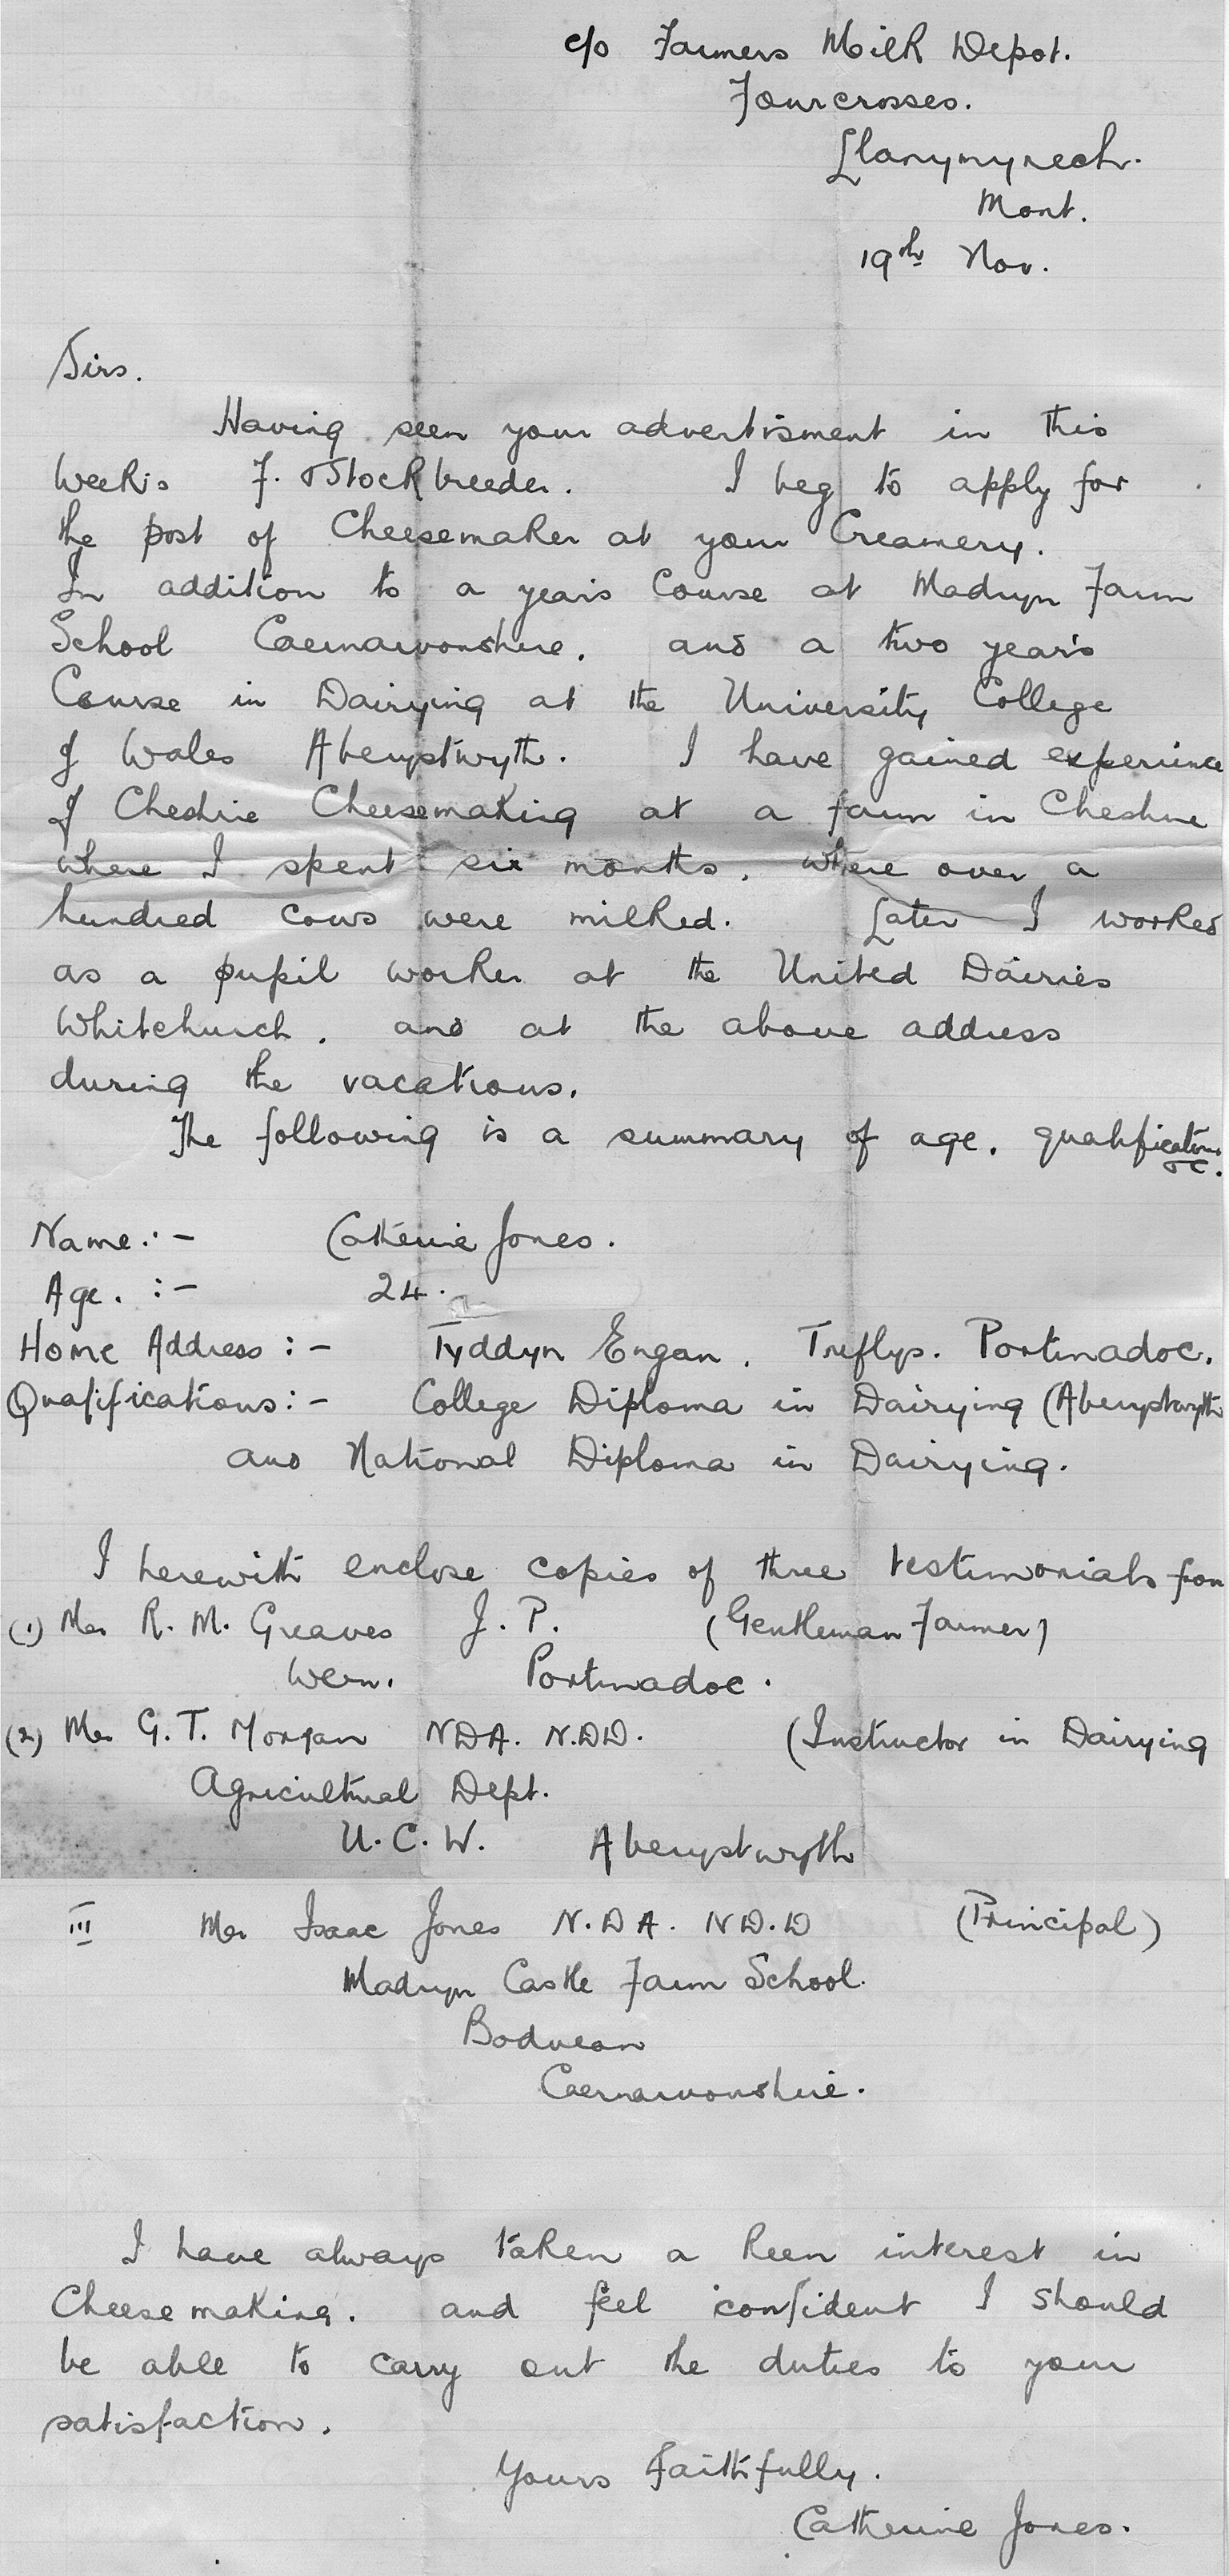 c/o Farmers Milk Depot.
Fourcrosses.
Llanymynech.
Mont.
19th Nov.
Sirs.
Having seen your advertisment in this
week's F. & Stockbreeder. I beg to apply for
the post of Cheesemaker at your Creamery.
In addition to a year's Course at Madryn Farm
School Caernarvonshire. and a two year's
Course in Dairying at the University College
of Wales Aberystwyth. I have gained experience
of Cheshire Cheesemaking at a farm in Cheshire
where I spent six months. where over a
hundred cows were milked. Later I worked
as a pupil worker at the United Dairies
Whitchurch. and at the above address
during the vacations.
The following is a summary of age. qualifications
etc.
Name :- Catherine Jones.
Age. :- 24.
Home Address :- Tyddyn Engan. Treflys. Portmadoc.
Qualifications :- College Diploma in Dairying (Aberystwyth
and National Diploma in Dairying.
I herewith enclose copies of three testimonials from
(1) Mr R. M. Greaves J. P. (Gentleman Farmer)
Wern. Portmadoc.
(2) Mr G. T. Morgan NDA. N.DD. (Instructor in Dairying
Agricultural Dept.
U. C. W. Aberystwyth
III Mr Isaac Jones N.DA. ND.D (Principal)
Madryn Castle Farm School.
Boduean
Caernarvonshire.
I have always taken a keen interest in
Cheesemaking. and feel confident I should
be able to carry out the duties to your
satisfaction.
Yours Faithfully.
Catherine Jones.